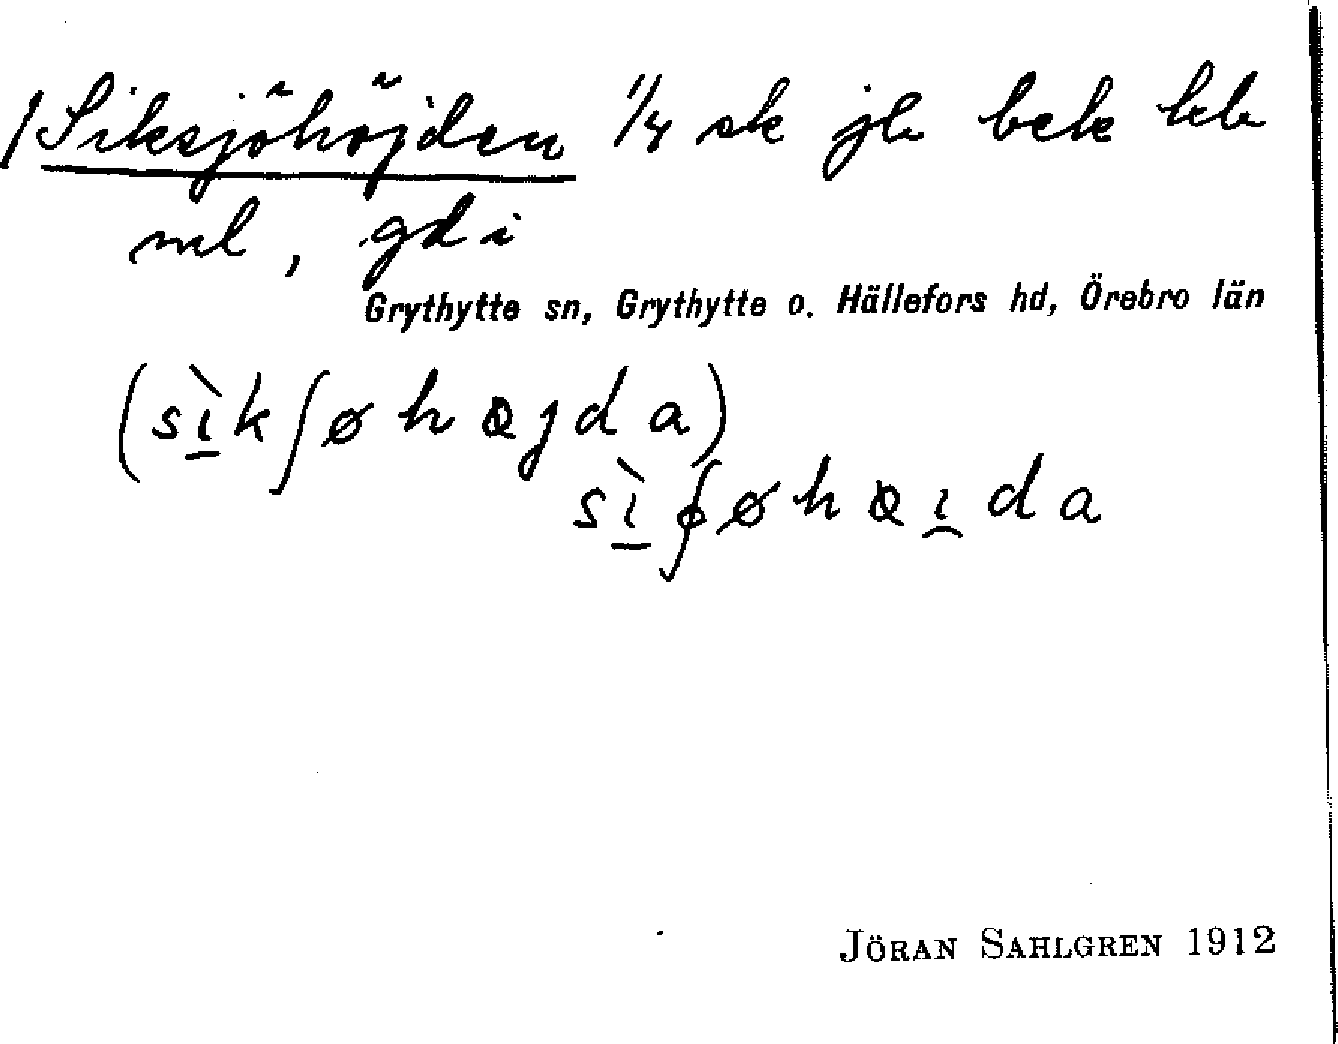 /Siksjöhöjden 1/4 sk jb bek kb
ml, gd i
Grythytte sn, Grythytte o. Hällefors hd, Örebro län
(sìkʃøhɑjda)
Jöran Sahlgren 1912